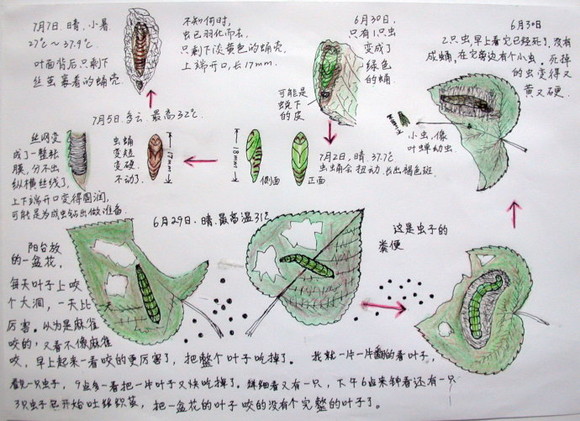 7月7日 晴, 小暑
27℃ ~ 37.9℃.
叶面背后只剩下
丝茧裹着的蛹壳
不知何时,
虫已羽化而去,
只剩下淡黄色的蛹壳,
上端开口, 长17mm.
6月30日
只有1只虫
变成了
绿色
的蛹
可能是
蜕下
的皮
6月30日
2只虫, 早上看它已经死了, 没有
成蛹, 在它旁边有个小虫. 死掉
的虫变得又
黄又硬.
小虫, 像
叶蝉幼虫
7月5日 多云 最高32℃
丝网变
成了一整粘
膜, 分不出
纵横丝线了,
上下端开口变得圆润,
可能是为成虫钻出做准备.
虫蛹
变短
变硬
不动了
17mm
18mm
侧面
正面
7月2日, 晴, 37.7℃
虫蛹会扭动, 长出褐色斑.
6月29日, 晴. 最高温31℃
这是虫子的
粪便
阳台放
的一盆花,
每天叶子上咬
个大洞, 一天比一
厉害. 以为是麻雀
咬的, 又看不像麻雀
咬, 早上起来一看咬的更厉害了, 把整个叶子吃掉了. 我就一片一片翻的看叶子,
看见一只虫子, 9点多一看把一片叶子又快吃掉了. 详细看又有一只, 下午6点来钟看还有一只
3只虫子已开始吐丝织茧, 把一盆花的叶子咬的没有个完整的叶子了.